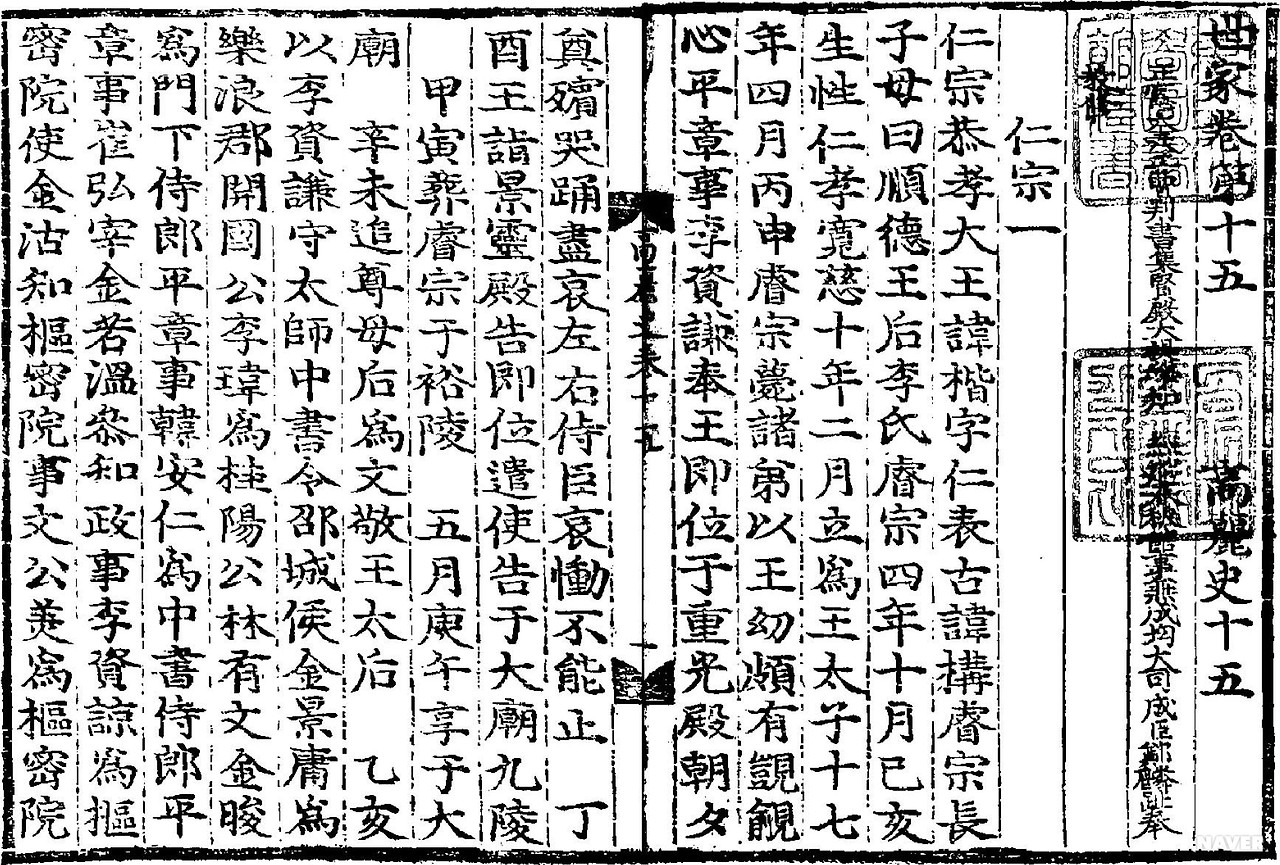 世家卷第十五 高麗史十五
正憲大夫工曹判書集賢殿大提學知 經筵春秋館事兼成均大司成臣鄭麟趾奉
敎修
仁宗一
仁宗恭孝大王諱楷字仁表古諱構睿宗長
子母曰順德王后李氏睿宗四年十月己亥
生性仁孝寬慈十年二月立爲王太子十七
年四月丙申睿宗薨諸弟以王幼頗有覬覦
心平章事李資謙奉王即位于重光殿朝夕
高麗史卷十五 一
奠殯哭踊盡哀左右侍臣哀慟不能止 丁
酉王詣景靈殿告即位遣使告于大廟九陵
甲寅葬睿宗于裕陵 五月庚午享于大
廟 辛未追尊母后爲文敬王太后 乙亥
以李資謙守太師中書令邵城侯金景庸爲
樂浪郡開國公李瑋爲桂陽公林有文金晙
爲門下侍郎平章事韓安仁爲中書侍郎平
章事崔弘宰金若溫叅知政事李資諒爲樞
密院使金沽知樞密院事文公美爲樞密院
NAVER